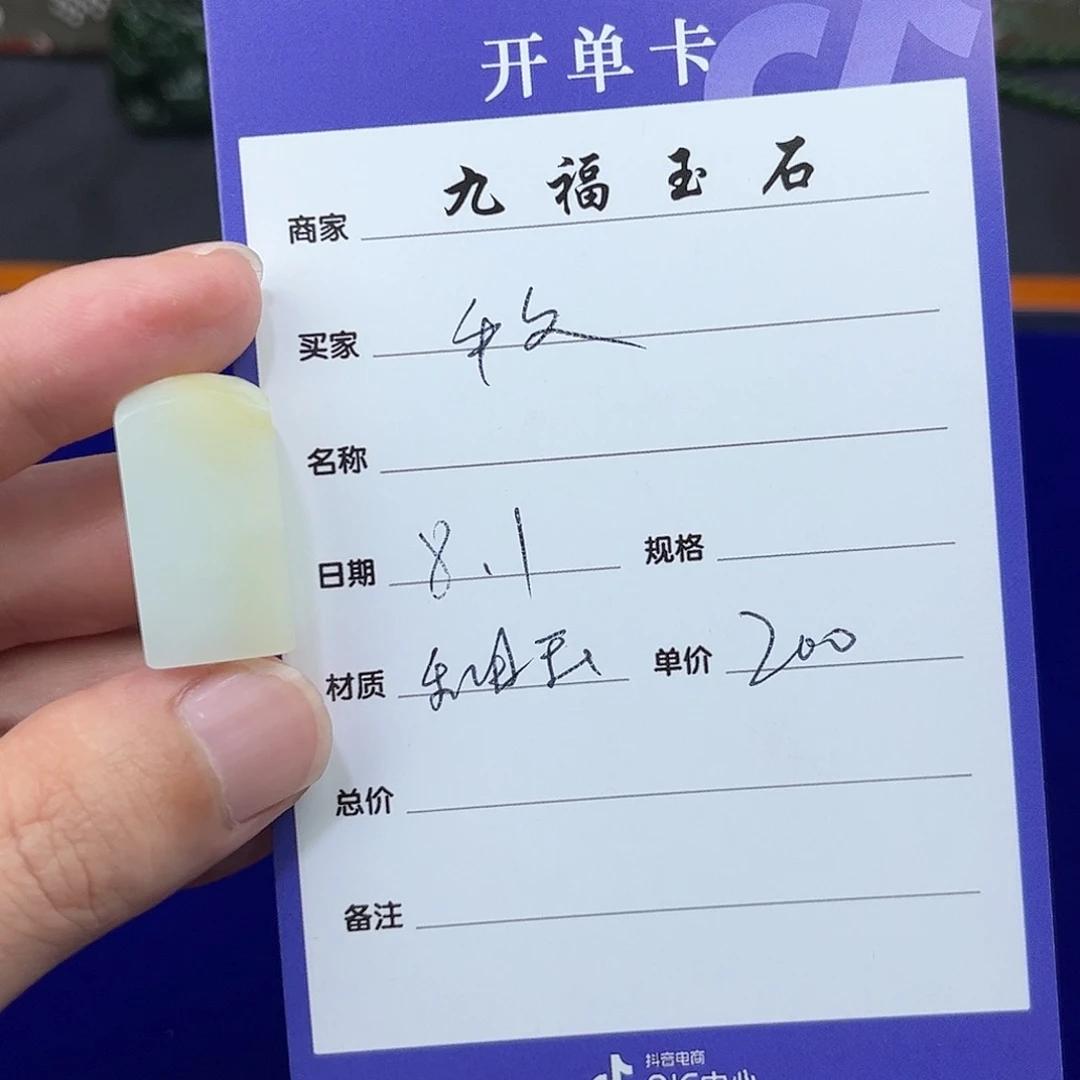 开单卡
商家 九福玉石
买家 牧
名称
日期 8.1 规格
材质 和田玉 单价 200
总价
备注
抖音电商
QIC中心